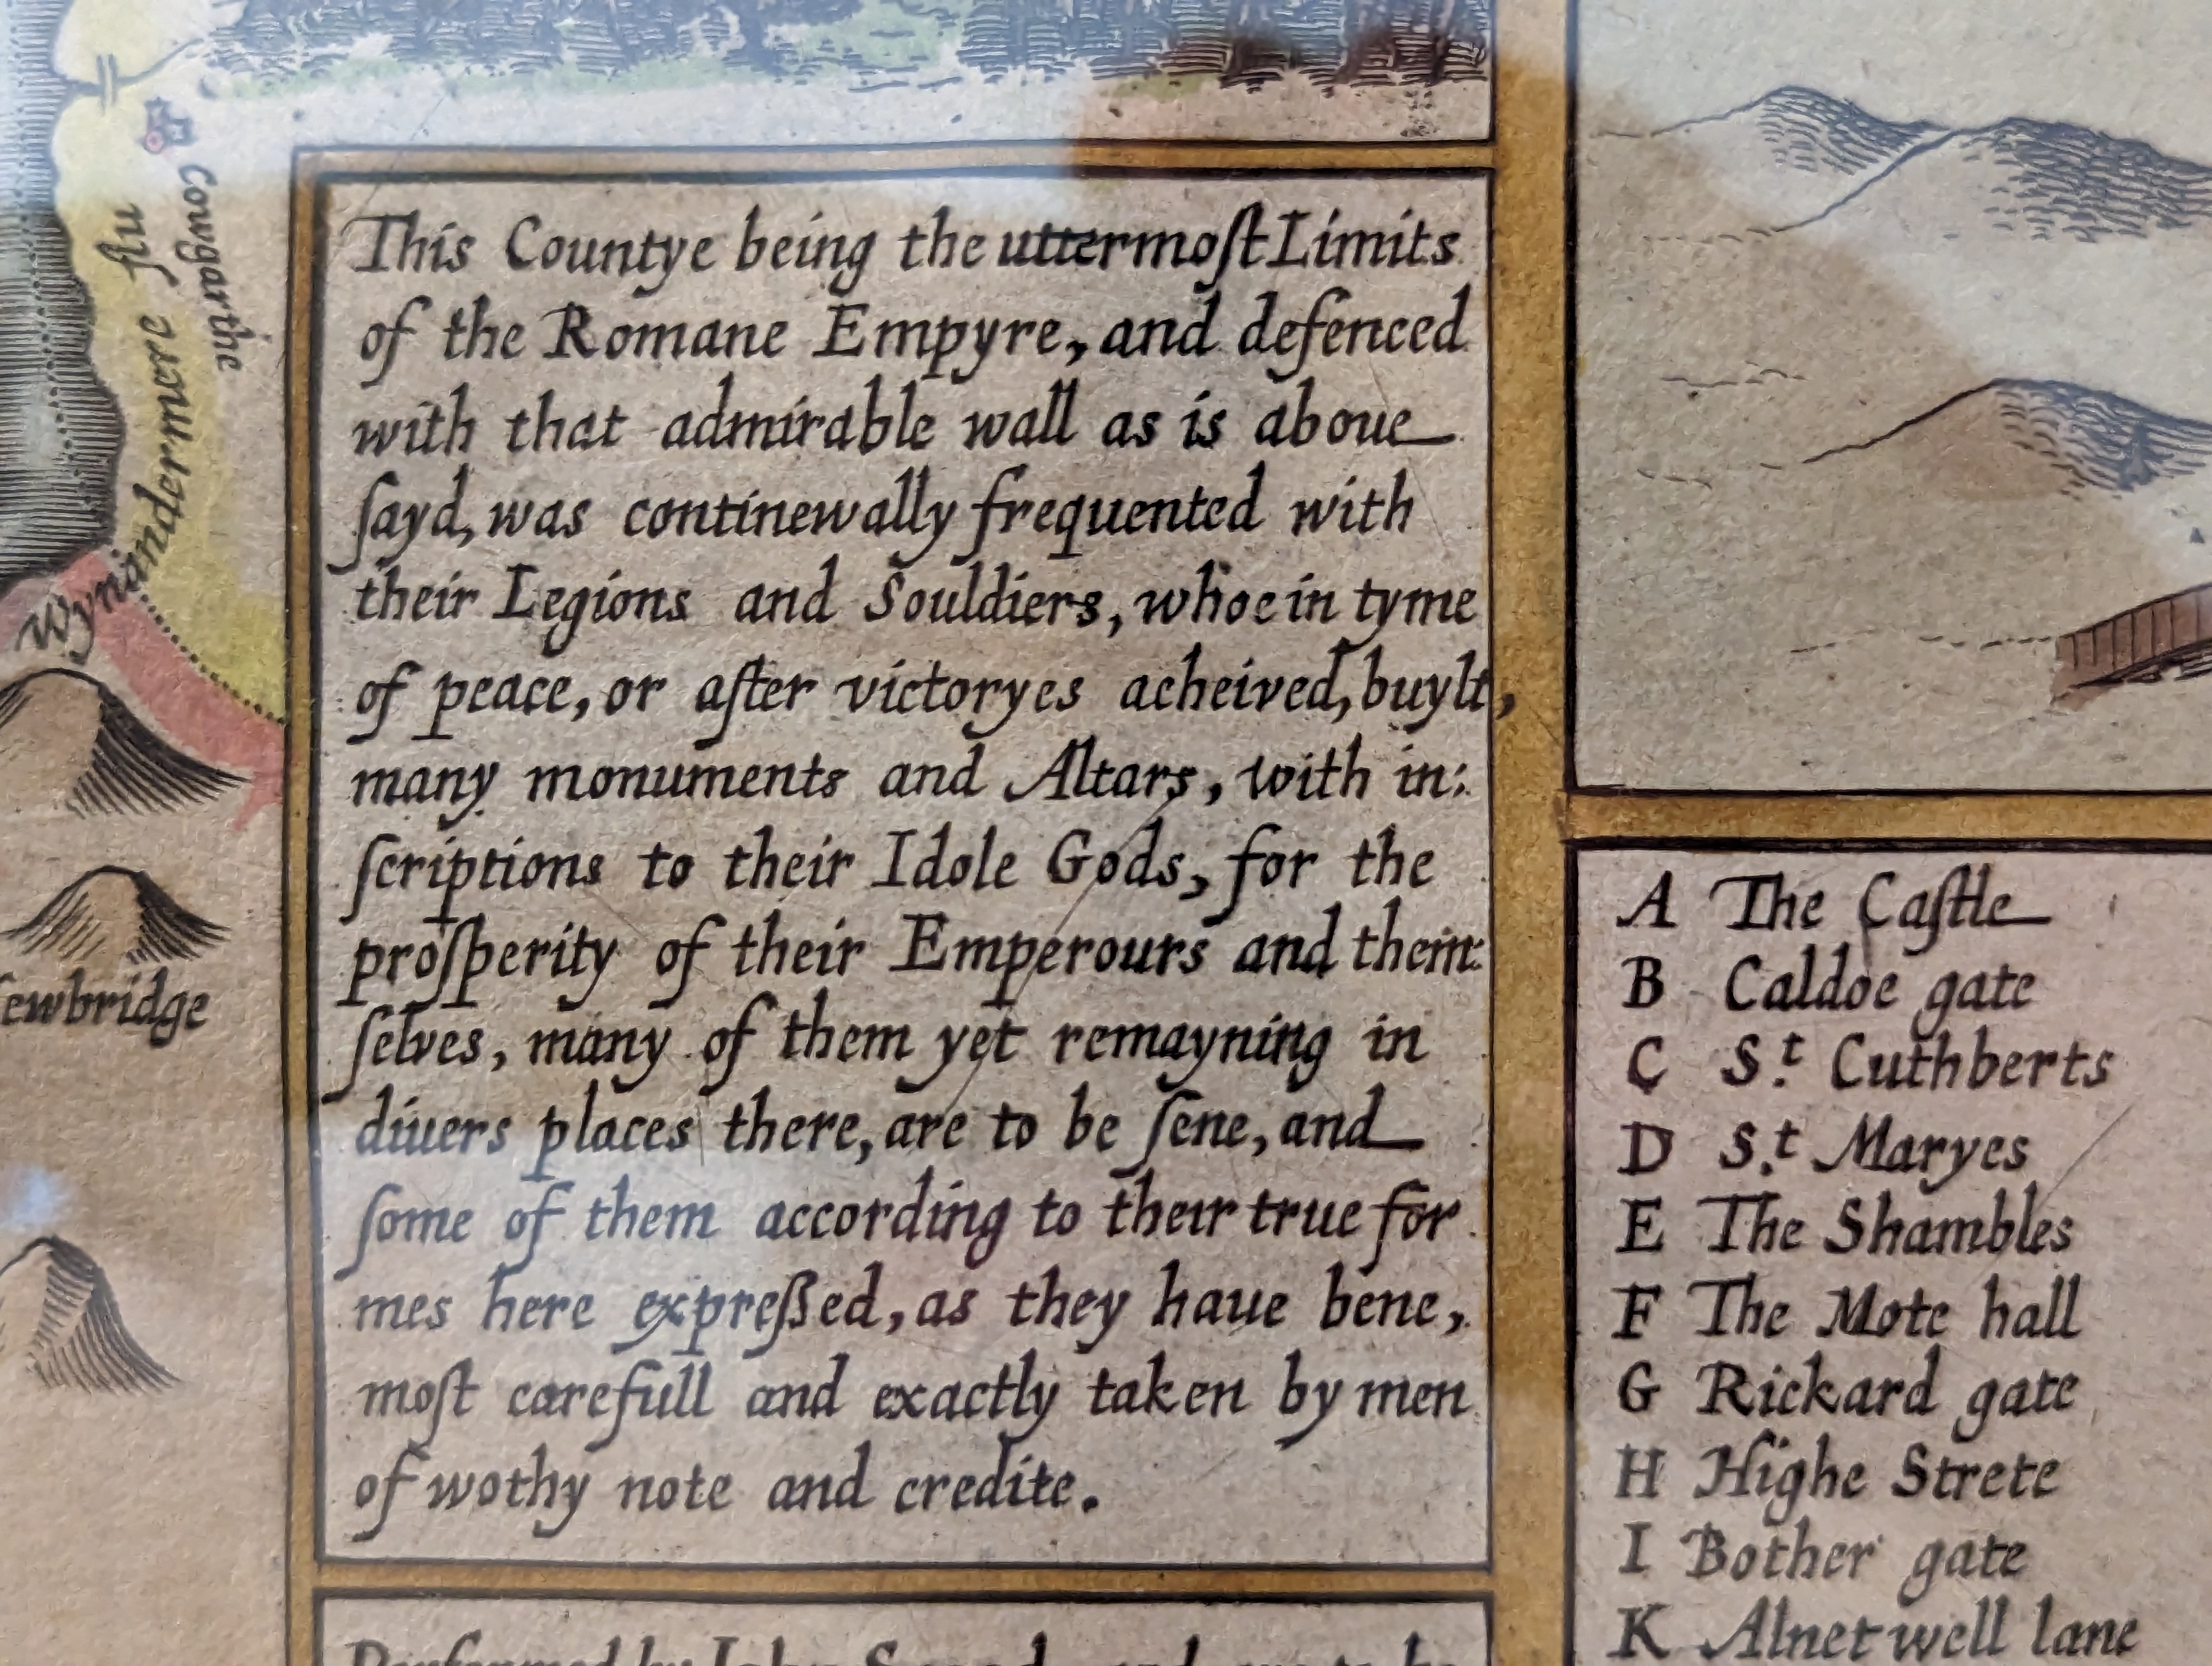 Cowgarthe
Wynandermere flu
ewbridge
This Countye being the uttermoſt Limits
of the Romane Empyre, and defenced
with that admirable wall as is aboue
ſayd, was continewally frequented with
their Legions and Souldiers, whoe in tyme
of peace, or after victoryes acheived, buylt,
many monuments and Altars, with in:
ſcriptions to their Idole Gods, for the
proſperity of their Emperours and them:
ſelves, many of them yet remayning in
diuers places there, are to be ſene, and
ſome of them according to their true for
mes here expreßed, as they haue bene,
moſt carefull and exactly taken by men
of wothy note and credite.
Performed by John Speed
A The Caſtle
B Caldoe gate
C S.t Cuthberts
D S.t Maryes
E The Shambles
F The Mote hall
G Rickard gate
H Highe Strete
I Bother gate
K Alnetwell lane